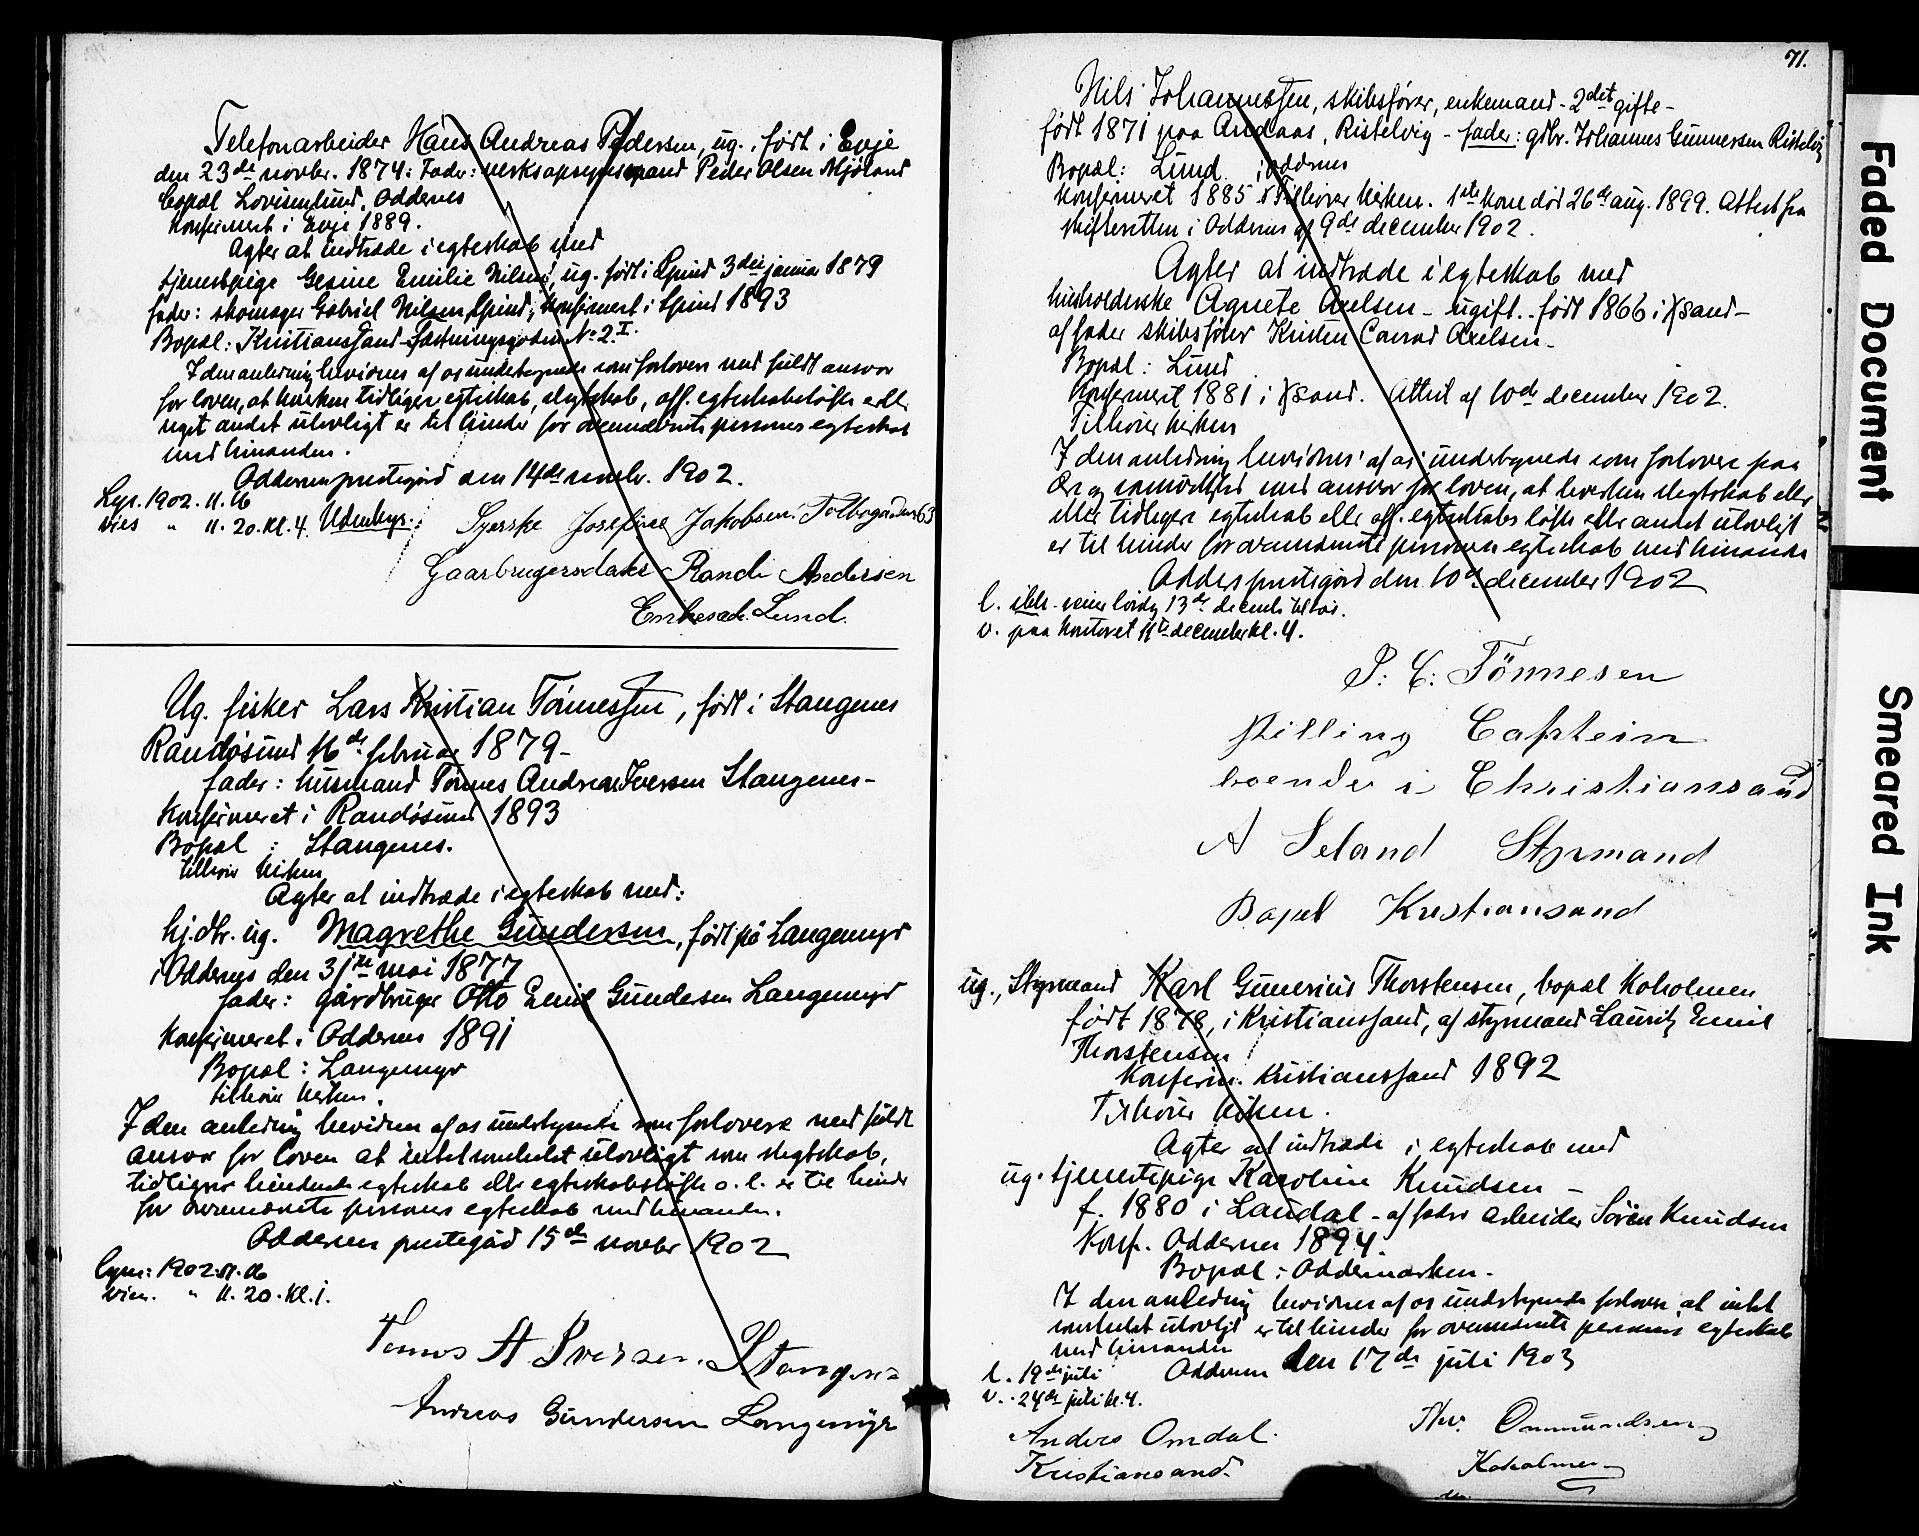 Telefonarbeider Hans Andreas Pedersen, ug., født i Evje
den 23de novbr. 1874: Fader: verksopsynsmand Peder Olsen Mjöland
bopæl Lovisenlund, Oddernes
Konfirmert i Evje 1889.
Agter at indtræde i egteskab med
tjenestpige Gesine Emilie Nilsen, ug. født i Spind 3die januar 1879
fader: skomager Gabriel Nilsen, Spind, Konfirmert i Spind 1893
Bopæl: Kristianssand Fæstningsgaden No 2 I.
I den anledning bevidnes af os undertegnede som forlovere med fuldt ansvar
for loven, at hverken tidligere egteskab, slegtskab, off. egteskabsløfte eller
noget andet ulovligt er til hinder for ovennævnte personers egteskab
med hinanden.
Oddernes prestegård den 14de novbr. 1902.
Lys. 1902. 11. 16
vies " 11. 20. kl. 4. Udenbys.
Syerske Josefine Jakobsen. Tolbogaden 63
Gaarbrugersdater Randi Andersen
Lund.
Ug. fisker Lars Kristian Tönnessen, født i Stangenes
Randøsund 16de februar 1879-
fader: husmand Tönnes Andreas Iversen Stangenes-
Konfirmeret i Randøsund 1893
Bopæl: Stangenes.
tilhører kirken
Agter at indtræde i egteskab med:
hj.dtr. ug. Magrethe Gundersen, født på Langemyr
i Oddernes den 31te mai 1877
fader: gårdbruger Otto Emil Gundersen Langemyr
Konfirmeret i Oddernes 1891
Bopæl: Langemyr
tilhører kirken.
I den anledning bevidnes af os undertegnede som forlovere med fuldt
ansvar for loven at intet somhelst ulovligt som slegtskab,
tidligere hindrende egteskab eller egteskabsløfte o. l. er til hinder
for ovennævnte persons egteskab med hinanden.
Oddernes prestegård 15de novbr 1902
Lyses: 1902. 11. 16
vies. " 11. 20. kl. 1.
Tönnes A Iversen. Stangenes
Andreas Gundersen Langemyr
71.
Nils Johannessen, skibsfører, enkemand - 2det gifte -
født 1871 paa Andaas, Ristelvig - fader: gdbr. Johannes Gunnersen Ristelvig
Bopæl: Lund i Oddernes
Konfirmeret 1885. Tilhører kirken. 1ste kone død 26de aug. 1899. Attest fra
skifteretten i Oddernes af 9de december 1902.
Agter at indtræde i egteskab med
husholderske Agnete Axelsen - ugift - født 1866 i Ksand -
af fader skibsfører Kristen Conrad Axelsen -
Bopæl: Lund
Konfirmeret 1881 i Ksand. Attest af 10de december 1902.
Tilhører kirken
I den anledning bevidnes af os undertegnede som forlovere paa
ære og samvittighed med ansvar for loven, at hverken slegtskab eller
eller tidligere egteskab eller off. egteskabs løfte eller andet ulovligt
er til hinder for ovennævnte personers egteskab med hinanden
Oddernes prestegård den 10de december 1902
l. lørdag 13de decemb.
v. paa kontoret 11te december kl. 4.
P. C. Tönnesen
stilling Captein
boende i Christiansand
A Seland Styrmand
Bopel Kristiansand
ug., Styrmand Karl Gunerius Thorstensen, bopæl Kokolmen
født 1878, i Kristianssand, af styrmand Lauritz Emil
Thorstensen
Konfirm. Kristianssand 1892
Tilhører kirken.
Agter at indtræde i egteskab med
ug. tjenestepige Karoline Knudsen -
f. 1880 i Laudal - af fader arbeider Sören Knudsen
Konf. Oddernes 1894.
Bopæl: Oddemarken.
I den anledning bevidnes af os undertegnede forlovere, at intet
somhelst ulovligt er til hinder for ovennævnte persons egteskab
med hinanden
Oddernes den 17de juli 1903
l. 19de juli
v. 24de juli kl. 4.
Anders Omdal.
Kristiansand.
Thv. Ommundsen
Kokolmen
Faded Document
Smeared Ink